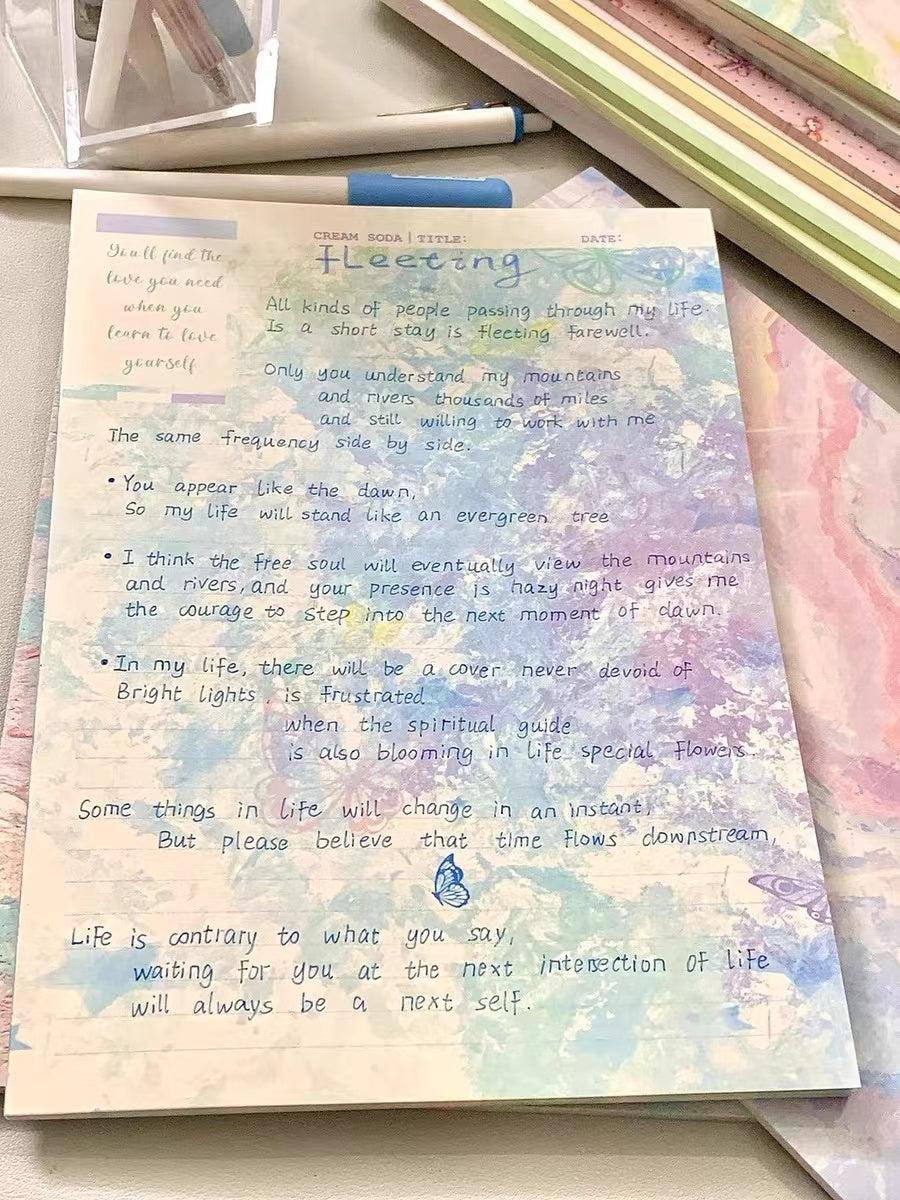 CREAM SODA | TITLE: DATE:
You'll find the
love you need
when you
learn to love
yourself
fLeeting
All kinds of people passing through my life.
Is a short stay is fleeting farewell.
Only you understand my mountains
and rivers thousands of miles
and still willing to work with me
The same frequency side by side.
• You appear like the dawn,
So my life will stand like an evergreen tree
• I think the free soul will eventually view the mountains
and rivers, and your presence is hazy night gives me
the courage to step into the next moment of dawn.
• In my life, there will be a cover never devoid of
Bright lights, is frustrated
when the spiritual guide
is also blooming in life special flowers.
Some things in life will change in an instant,
But please believe that time flows downstream,
Life is contrary to what you say,
waiting for you at the next intersection of life
will always be a next self.